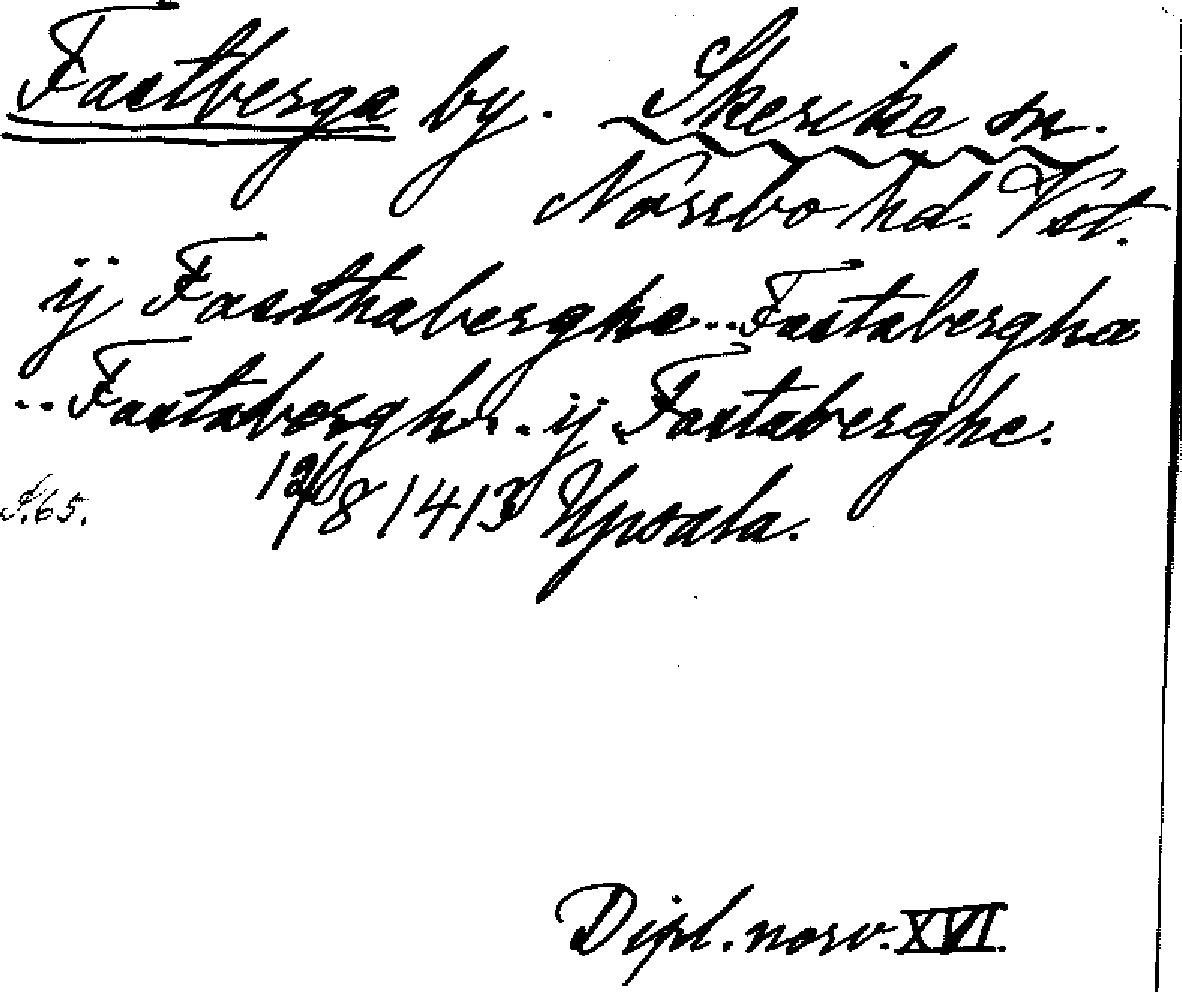 Fastberga by. Skerike sn.
Norrbo hd. Vst.
ij Fasthaberghe .. Fastabergha
.. Fastabergh .. ij Fastaberghe.
S. 65. 12/8 1413 Upsala.
Dipl. norv. XVI.